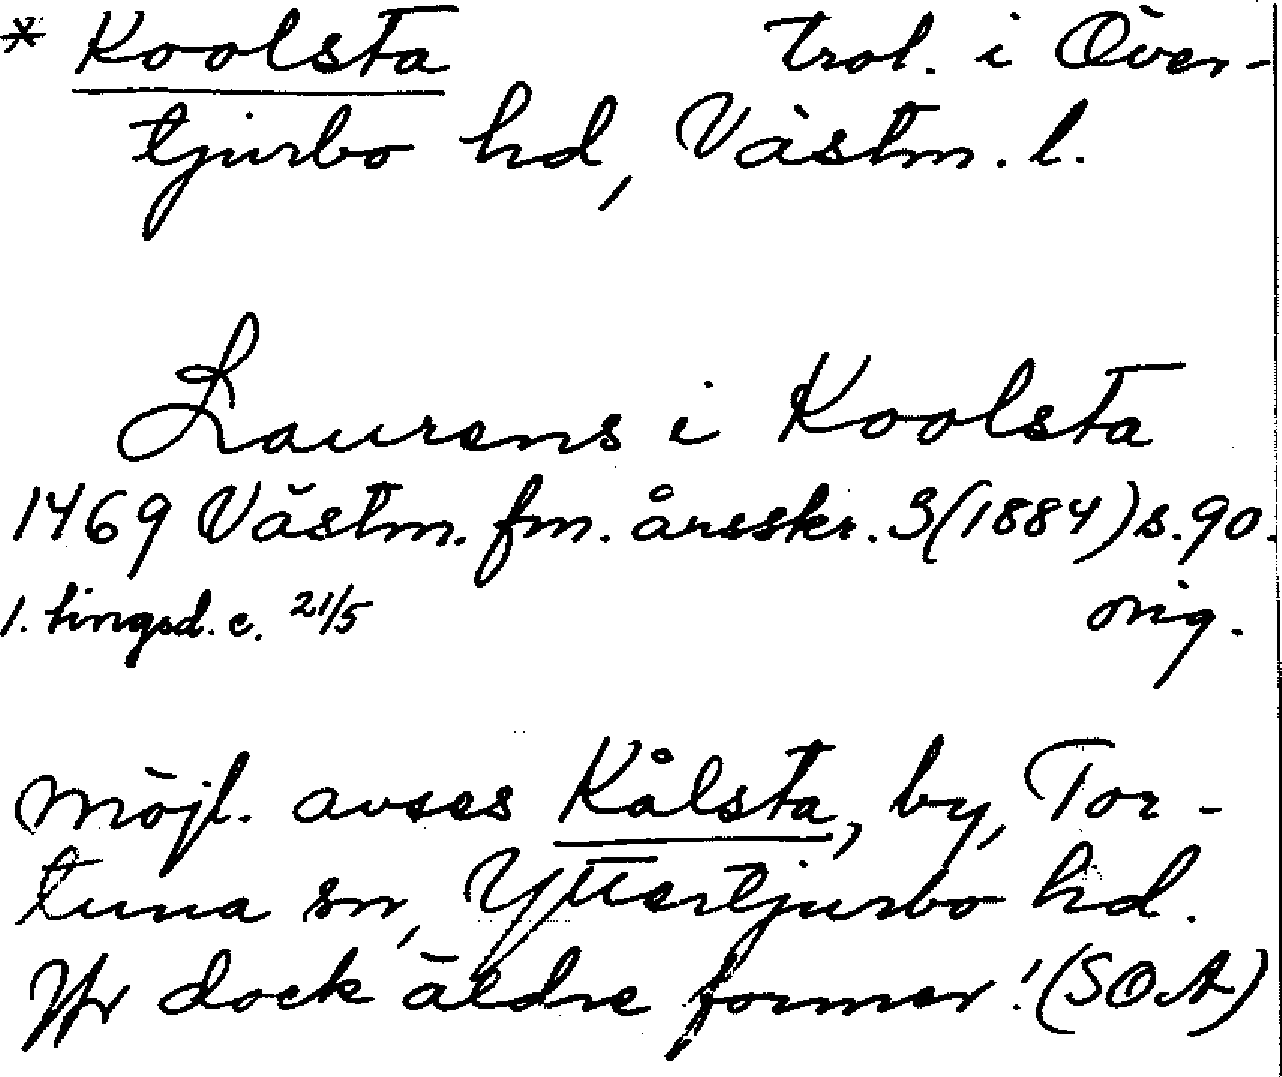 * Koolsta trol. i Över-
tjurbo hd, Västm. l.
Laurens i Koolsta
1469 Västm. fm. årsskr. 3 (1884) s. 90.
1. tingsd. e. 21/5 orig.
möjl. avses Kålsta, by, Tor-
tuna sn, Yttertjurbo hd.
Jfr dock äldre former! (SOA)